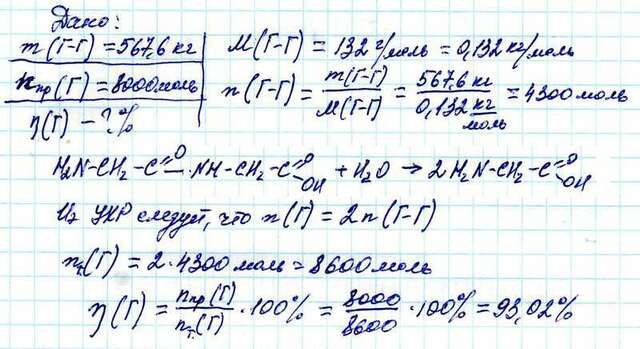 Дано:
m(Г-Г) = 567,6 кг
nпр(Г) = 8000 моль
η(Г) – ? %
M(Г-Г) = 132 г/моль = 0,132 кг/моль
n(Г-Г) = m(Г-Г)/M(Г-Г) = 567,6 кг/0,132 кг/моль = 4300 моль
H₂N-CH₂-C=O-NH-CH₂-C=O-OH + H₂O → 2 H₂N-CH₂-C=O-OH
Из УХР следует, что n(Г) = 2n(Г-Г)
nт.(Г) = 2·4300 моль = 8600 моль
η(Г) = nпр(Г)/nт.(Г) · 100% = 8000/8600 · 100% = 93,02%